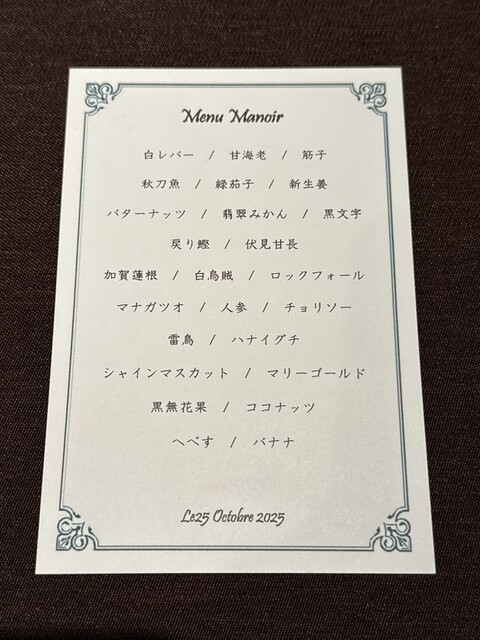 Menu Manoir
白レバー / 甘海老 / 筋子
秋刀魚 / 緑茄子 / 新生姜
バターナッツ / 翡翠みかん / 黒文字
戻り鰹 / 伏見甘長
加賀蓮根 / 白烏賊 / ロックフォール
マナガツオ / 人参 / チョリソー
雷鳥 / ハナイグチ
シャインマスカット / マリーゴールド
黒無花果 / ココナッツ
へべす / バナナ
Le25 Octobre 2025